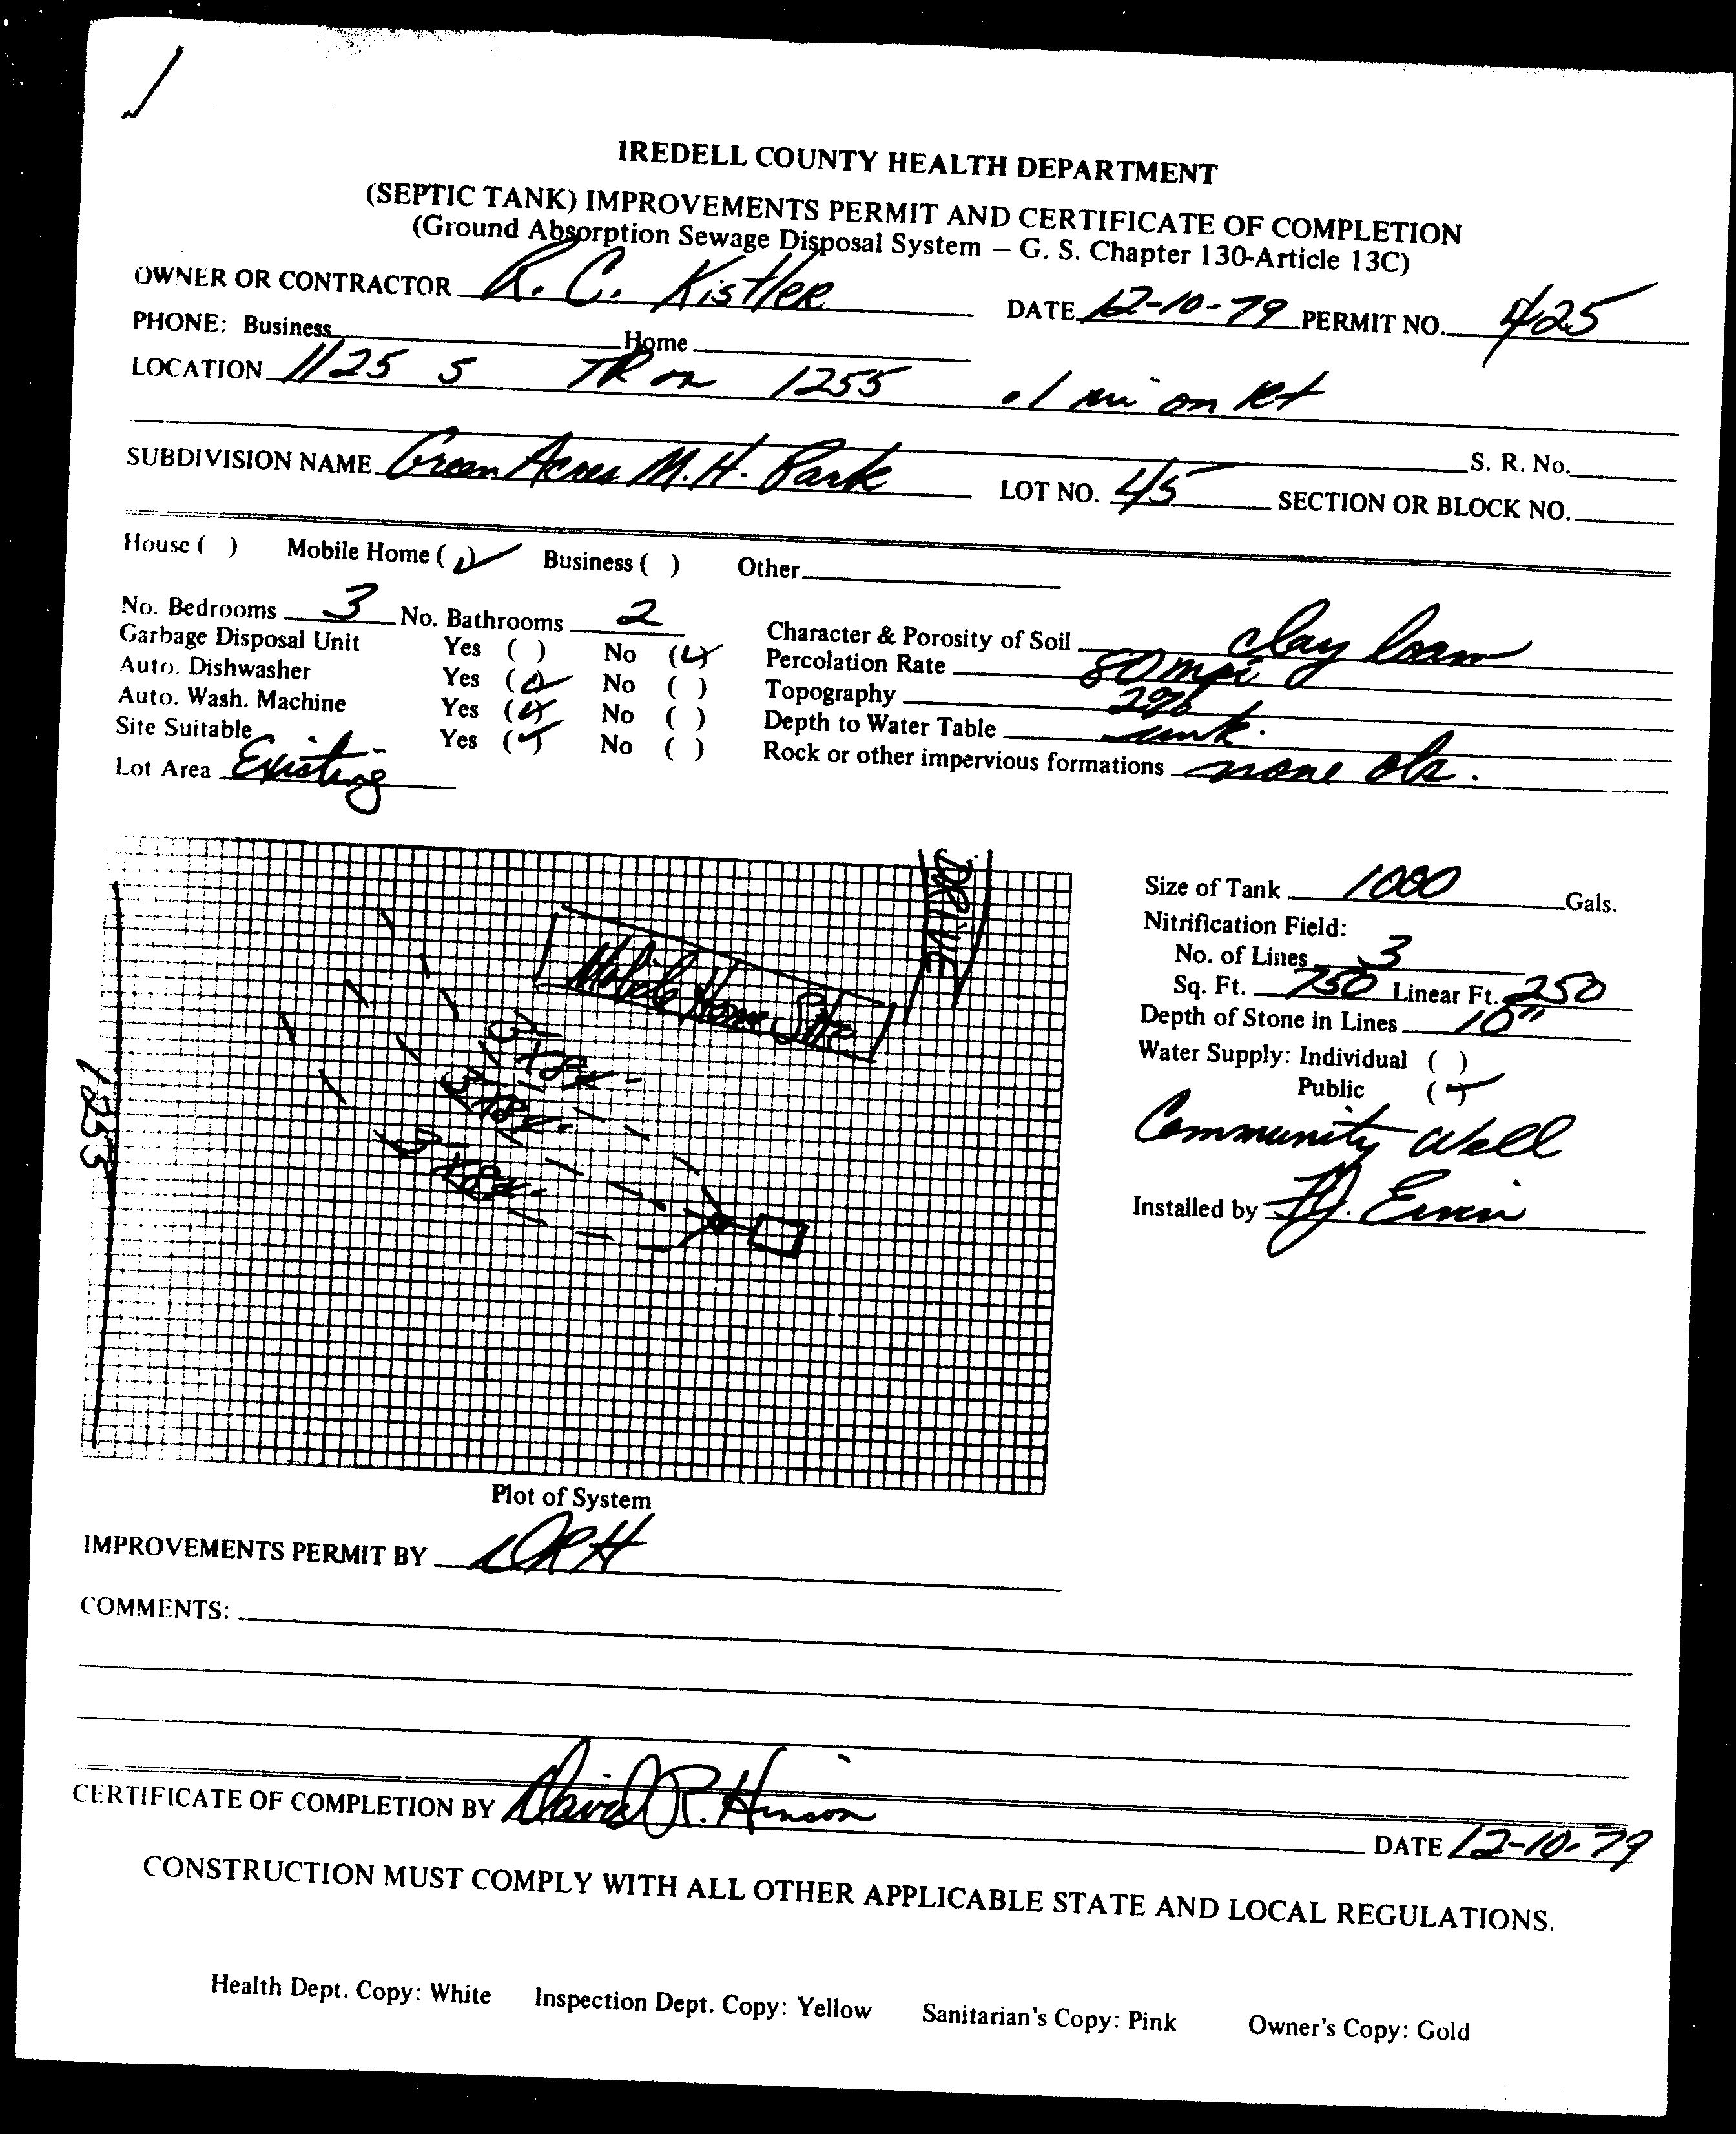 IREDELL COUNTY HEALTH DEPARTMENT
(SEPTIC TANK) IMPROVEMENTS PERMIT AND CERTIFICATE OF COMPLETION
(Ground Absorption Sewage Disposal System – G. S. Chapter 130-Article 13C)
OWNER OR CONTRACTOR R. C. Kistler DATE 12-10-79 PERMIT NO. 425
PHONE: Business Home
LOCATION 1125 S TR on 1255 .1 mi on Rt
S. R. No.
SUBDIVISION NAME Green Acres M.H. Park LOT NO. 45 SECTION OR BLOCK NO.
House ( ) Mobile Home (✓) Business ( ) Other
No. Bedrooms 3 No. Bathrooms 2
Garbage Disposal Unit Yes ( ) No (✓)
Auto. Dishwasher Yes (✓) No ( )
Auto. Wash. Machine Yes (✓) No ( )
Site Suitable Yes (✓) No ( )
Lot Area Existing
Character & Porosity of Soil clay loam
Percolation Rate 80 mpi
Topography 2%
Depth to Water Table unk.
Rock or other impervious formations none obs.
DRIVE
Mobile Home Site
1255
Size of Tank 1000 Gals.
Nitrification Field:
No. of Lines 3
Sq. Ft. 750 Linear Ft. 250
Depth of Stone in Lines 10"
Water Supply: Individual ( )
Public (✓)
Community Well
Installed by Ervin
Plot of System
IMPROVEMENTS PERMIT BY DRH
COMMENTS:
CERTIFICATE OF COMPLETION BY David R. Hinson
DATE 12-10-79
CONSTRUCTION MUST COMPLY WITH ALL OTHER APPLICABLE STATE AND LOCAL REGULATIONS.
Health Dept. Copy: White Inspection Dept. Copy: Yellow Sanitarian's Copy: Pink Owner's Copy: Gold